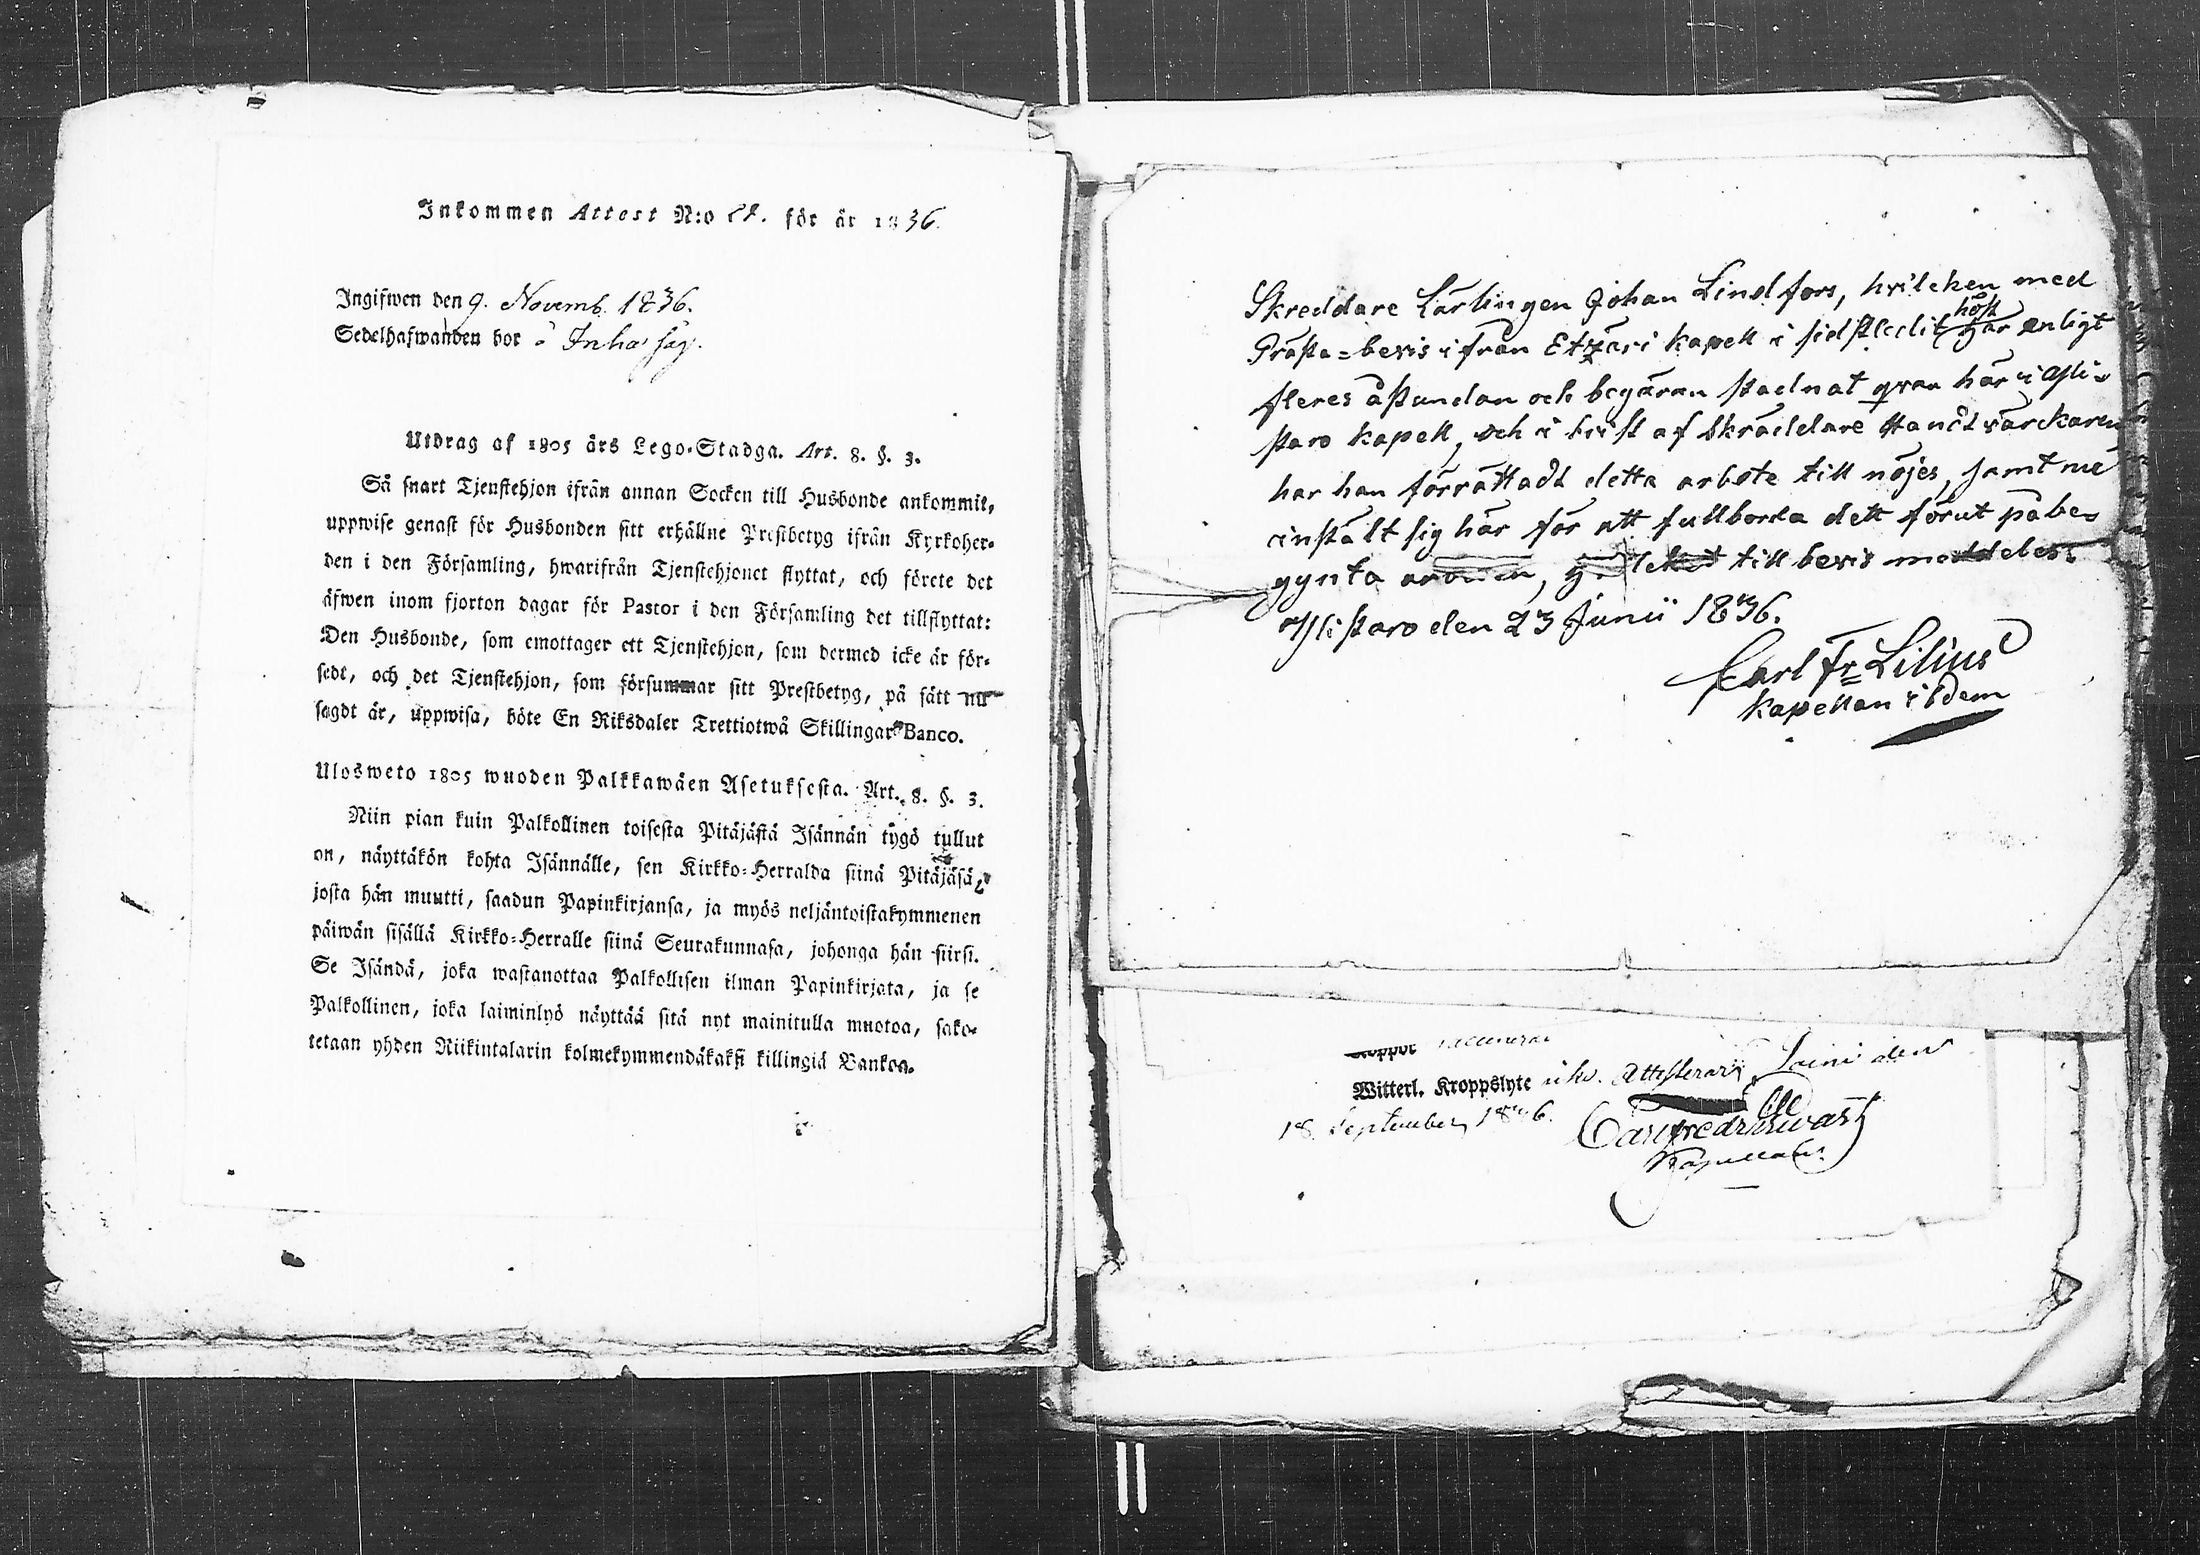 Inkommen Attest N:o för år 1836.
Ingifwen den 9. Novemb. 1836.
Sedelhafwanden bor å Inha såg.
Utdrag af 1805 års Lego-Stadga. Art. 8. §. 3.
Så snart Tjenstehjon ifrån annan Socken till Husbonde ankommit,
uppwise genast för Husbonden sitt erhållne Prestbetyg ifrån Kyrkoher-
den i den Församling, hwarifrån Tjenstehjonet flyttat, och förete det
äfwen inom fjorton dagar för Pastor i den Församling det tillflyttat:
Den Husbonde, som emottager ett Tjenstehjon, som dermed icke är för-
sedt, och det Tjenstehjon, som försummar sitt Prestbetyg, på sätt nu
sagdt är, uppwisa, böte En Riksdaler Trettiotwå Skillingar Banco.
Ulosweto 1805 wuoden Palkkawäen Asetuksesta. Art. 8. §. 3.
Niin pian kuin Palkollinen toisesta Pitäjästä Isännän tygö tullut
on, näyttäkön kohta Isännälle, sen Kirkko-Herralda siinä Pitäjäsä,
josta hän muutti, saadun Papinkirjansa, ja myös neljäntoistakymmenen
päiwän sisällä Kirkko-Herralle siinä Seurakunnasa, johonga hän siirsi.
Se Isändä, joka wastanottaa Palkollisen ilman Papinkirjata, ja se
Palkollinen, joka laiminlyö näyttää sitä nyt mainitulla muotoa, sako-
tetaan yhden Riikintalarin kolmekymmendäkaksi killingiä Bankoa.
Skreddare Lärlingen Johan Lindfors, hvilcken med
höst
Prästa-bevis ifrån Etzäri kapell i sidstledit går enligt
fleres åstundan och begäran stadnat qvar här i Yli-
staro kapell, och i brist af Skräddare Handtvärckaren
har han förrättadt detta arbete till nöjes, samt nu
instält sig här för att fullborda dett förut påbe-
gynta till bevis meddeles.
Ylistaro den 23 Junii 1836.
Carl Fr Lilius
Kapellan ibdem
Witterl. Kroppslyte Attesterar den
18 September 1836.
Kapellan.